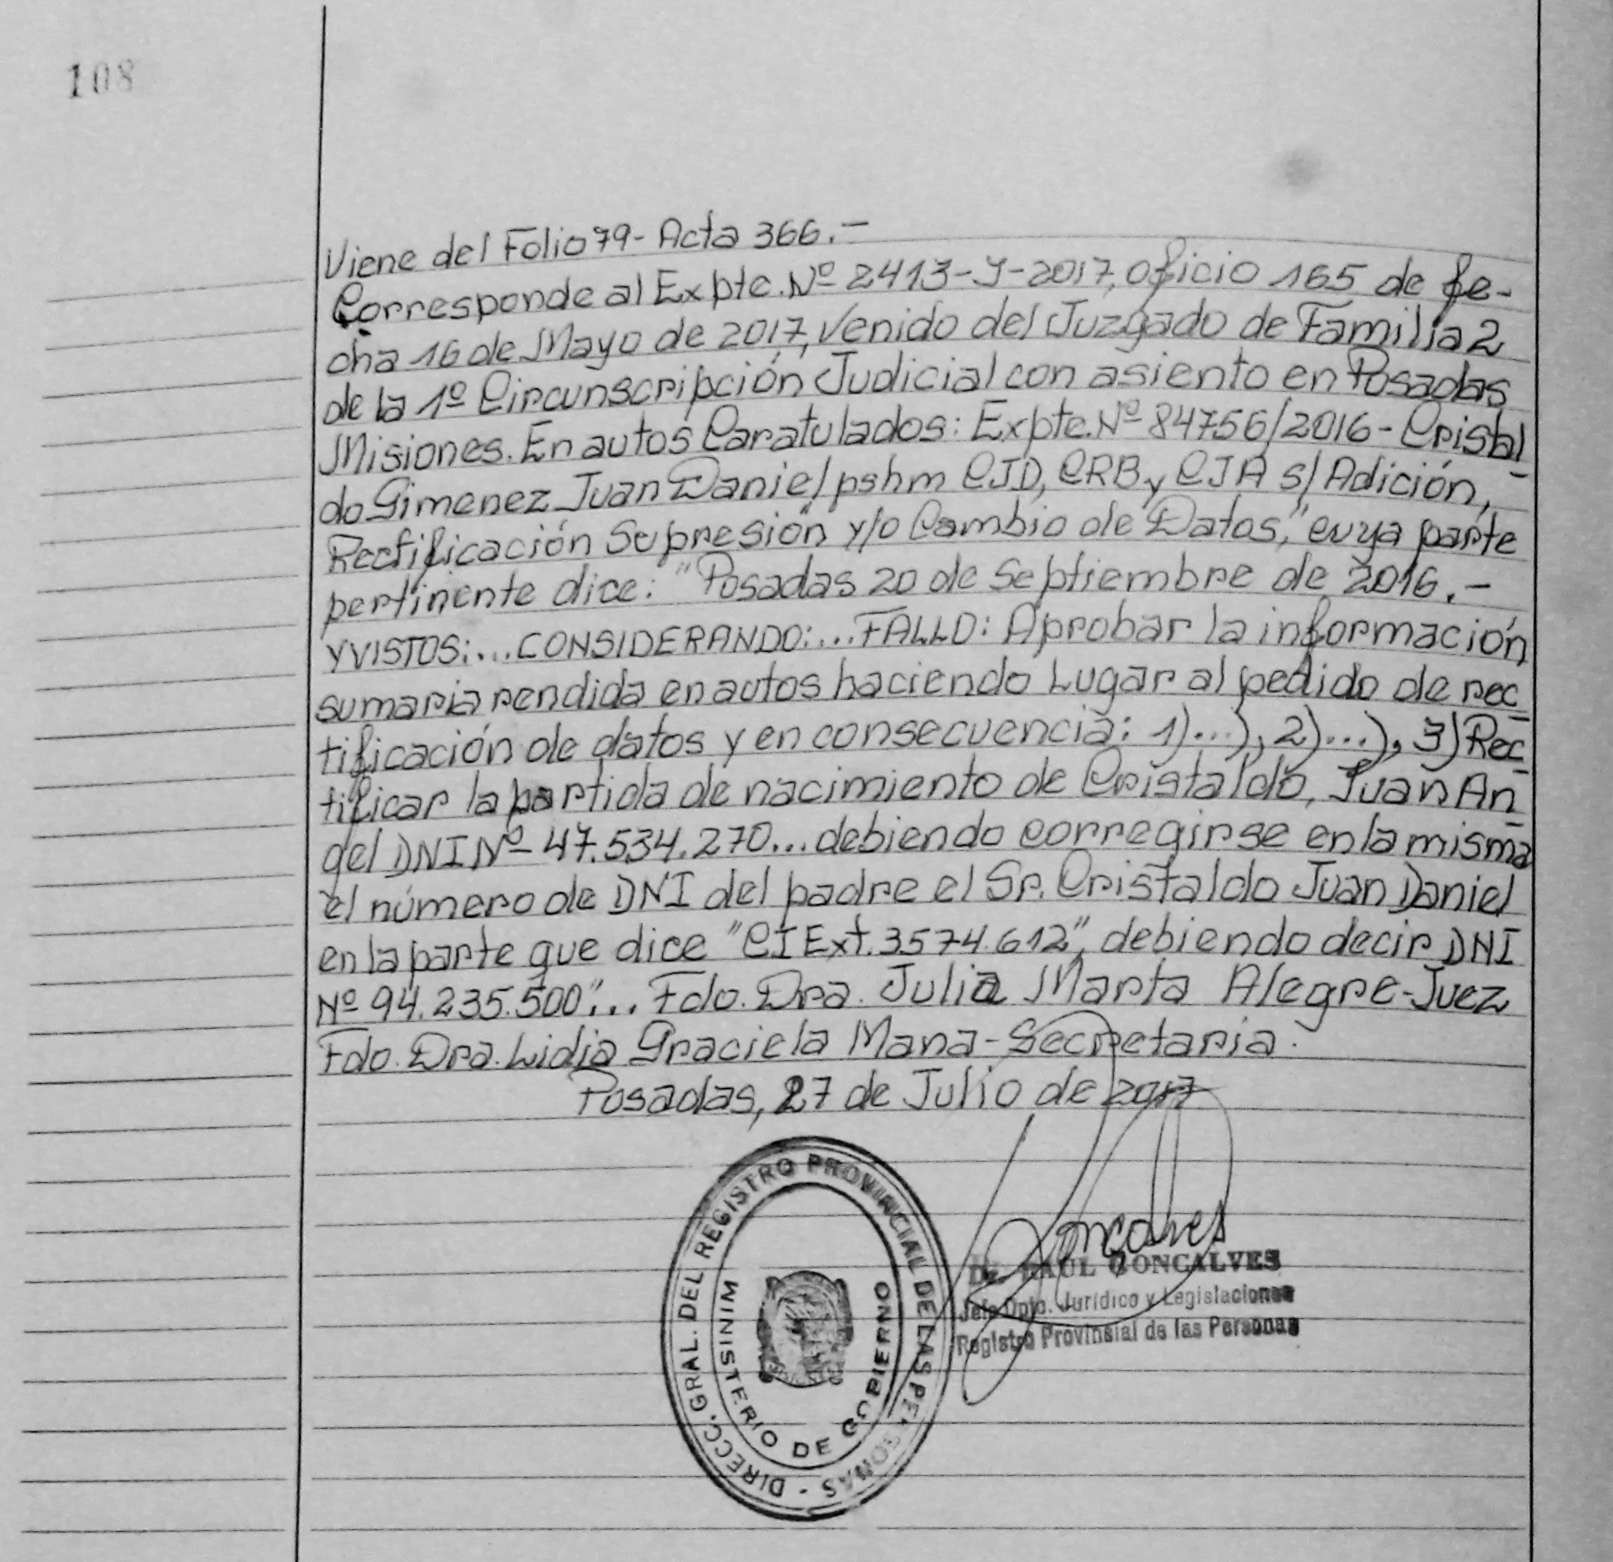 108
Viene del Folio 79- Acta 366.-
Corresponde al Expte. Nº 2413-J-2017, oficio 165 de fe-
cha 16 de Mayo de 2017, Venido del Juzgado de Familia 2
de la 1º Circunscripción Judicial con asiento en Posadas
Misiones. En autos Caratulados: Expte. Nº 84756/2016- Cristal
do Gimenez Juan Daniel pshm CJD, CRB y CJA s/ Adición,
Rectificación Supresión y/o Cambio de Datos," cuya parte
pertinente dice: "Posadas 20 de Septiembre de 2016.-
Y VISTOS:... CONSIDERANDO:... FALLO: Aprobar la información
sumaria rendida en autos haciendo Lugar al pedido de rec
tificación de datos y en consecuencia: 1)...), 2)...), 3) Rec
tificar la partida de nacimiento de Cristaldo, Juan An
gel DNI Nº 47.534.270... debiendo corregirse en la misma
el número de DNI del padre el Sr. Cristaldo Juan Daniel
en la parte que dice "CI Ext. 3574.612", debiendo decir DNI
Nº 94.235.500"... Fdo. Dra. Julia Marta Alegre-Juez
Fdo. Dra. Lidia Graciela Mana-Secretaria.
Posadas, 27 de Julio de 2017
DIRECC. GRAL. DEL REGISTRO PROVINCIAL DE LAS PERSONAS -
MINISTERIO DE GOBIERNO
Goncalves
Dr. RAUL GONCALVES
Jefe Dpto. Jurídico y Legislaciones
Registro Provinsial de las Personas